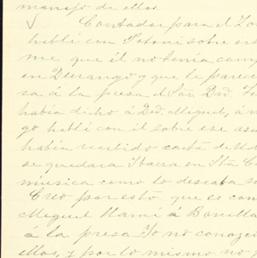 manejo de ellos.
Contador para el Zo
hablé con Fetoni sobre es
me, que él no tenia comp
en Durango y que le parece
sa á la presa el Sor Dn.
habia dicho á Dn. Miguel, á
go hablé con él sobre ese asu
habia recibido carta de
se quedara Ibarra en Sta. C
música como lo deseaba
Creo por esto, que es con
Miguel llamé á Bonilla
á la presa Yo no conozco
ellas, y por lo mismo no